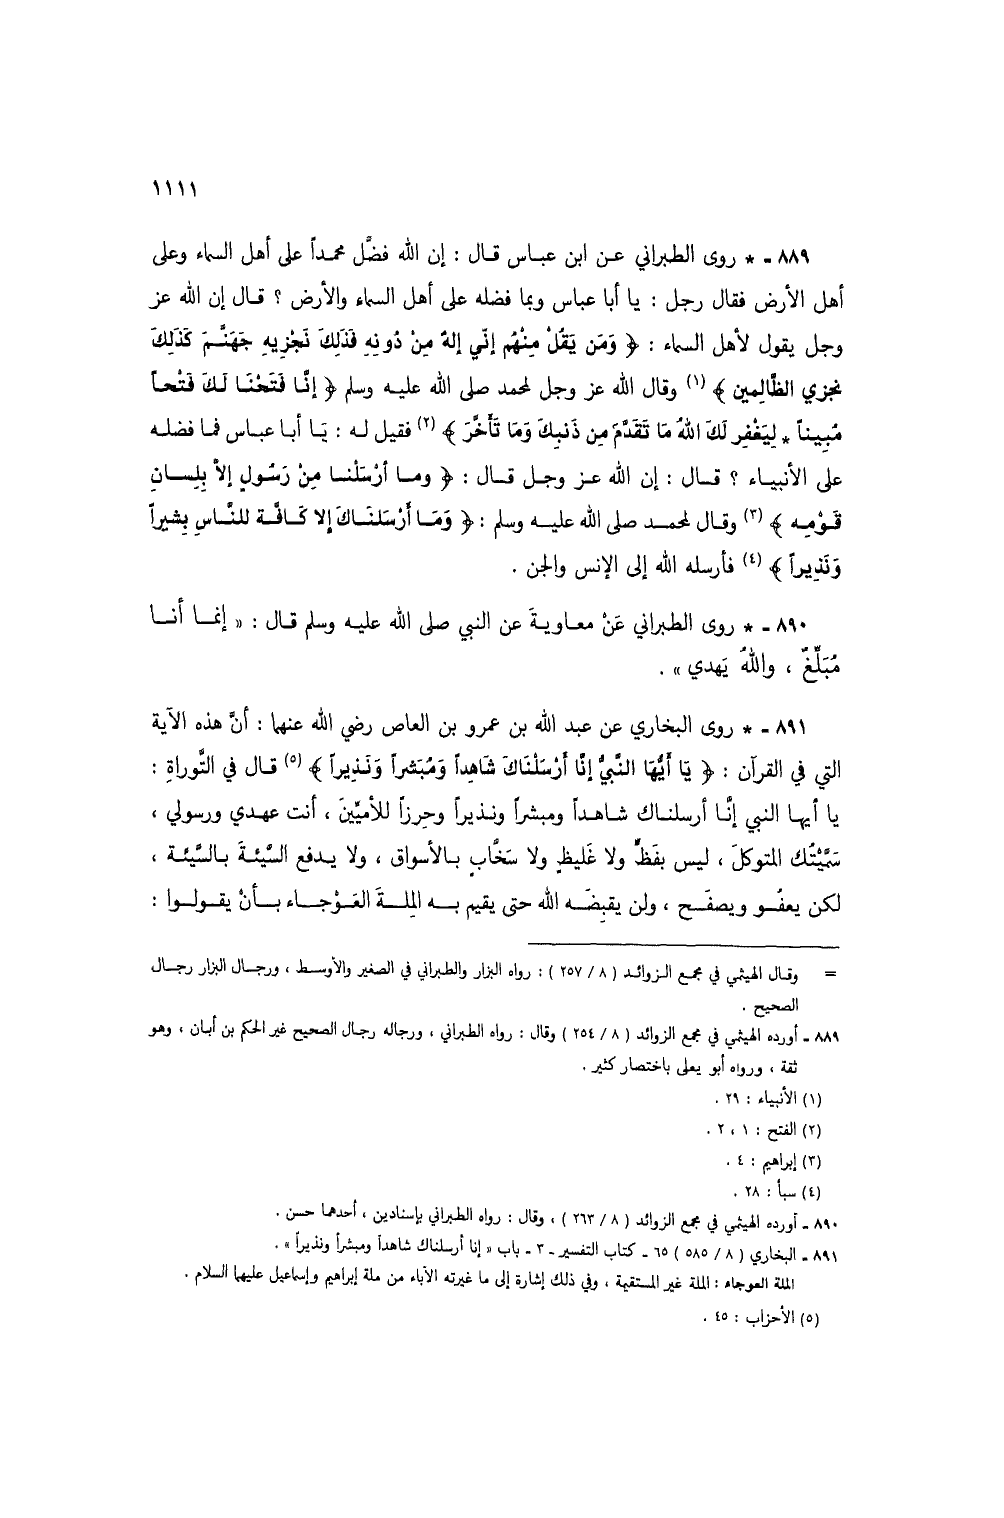 ١١١١
٨٨٩ - * روى الطبراني عن ابن عباس قال : إن الله فضَّل محمداً على أهل السماء وعلى
أهل الأرض فقال رجل : يا أبا عباس وبما فضله على أهل السماء والأرض ؟ قال إن الله عز
وجل يقول لأهل السماء : ﴿ وَمَن يَقُلْ مِنْهُم إنّي إلهٌ مِنْ دُونِهِ فَذَلِكَ نَجْزِيهِ جَهَنَّمَ كَذَلِكَ
نجزي الظَّالِمين ﴾ (١) وقال الله عز وجل لمحمد صلى الله عليه وسلم ﴿ إنَّا فَتَحْنَا لَكَ فَتْحاً
مُبِيناً * لِيَغْفِر لَكَ اللهُ مَا تَقَدَّمَ مِن ذَنبِكَ وَمَا تَأَخَّرَ ﴾ (٢) فقيل له : يَا أبا عباس فما فضله
على الأنبياء ؟ قال : إن الله عز وجل قال : ﴿ وما أرْسَلْنا مِنْ رَسُولٍ إلاّ بِلِسانِ
قَوْمِه ﴾ (٣) وقال لمحمد صلى الله عليه وسلم : ﴿ وَمَا أَرْسَلنَاكَ إلا كَافَّة للنَّاسِ بشيراً
وَنَذِيراً ﴾ (٤) فأرسله الله إلى الإنس والجن .
٨٩٠ - * روى الطبراني عَنْ معاويةَ عن النبي صلى الله عليه وسلم قال : « إنما أنا
مُبَلِّغٌ ، واللهُ يَهدي » .
٨٩١ - * روى البخاري عن عبد الله بن عمرو بن العاص رضي الله عنهما : أنَّ هذه الآية
التي في القرآن : ﴿ يَا أَيُّهَا النَّبيُّ إنَّا أَرْسَلْنَاكَ شَاهِداً وَمُبَشراً وَنَذِيراً ﴾ (٥) قال في التَّوراةِ :
يا أيها النبي إنَّا أرسلناك شاهداً ومبشراً ونذيراً وحِرزاً للأميِّينَ ، أنت عهدي ورسولي ،
سَمَّيْتُك المتوكلَ ، ليس بفَظٍّ ولا غَليظٍ ولا سَخَّابٍ بالأسواق ، ولا يدفع السَّيئةَ بالسَّيئة ،
لكن يعفُو ويصفَح ، ولن يقبِضَه الله حتى يقيم به المِلةَ العَوْجاء بأنْ يقولوا :
= وقال الهيثمي في مجمع الزوائد ( ٨ / ٢٥٧ ) : رواه البزار والطبراني في الصغير والأوسط ، ورجال البزار رجال
الصحيح .
٨٨٩ - أورده الهيثمي في مجمع الزوائد ( ٨ / ٢٥٤ ) وقال : رواه الطبراني ، ورجاله رجال الصحيح غير الحكم بن أبان ، وهو
ثقة ، ورواه أبو يعلى باختصار كثير .
(١) الأنبياء : ٢٩ .
(٢) الفتح : ١ ، ٢ .
(٣) إبراهيم : ٤ .
(٤) سبأ : ٢٨ .
٨٩٠ - أورده الهيثمي في مجمع الزوائد ( ٨ / ٢٦٣ ) ، وقال : رواه الطبراني بإسنادين ، أحدهما حسن .
٨٩١ - البخاري ( ٨ / ٥٨٥ ) ٦٥ - كتاب التفسير - ٣ - باب « إنا أرسلناك شاهداً ومبشراً ونذيراً » .
الملة العوجاء : الملة غير المستقيمة ، وفي ذلك إشارة إلى ما غيرته الآباء من ملة إبراهيم وإسماعيل عليهما السلام .
(٥) الأحزاب : ٤٥ .